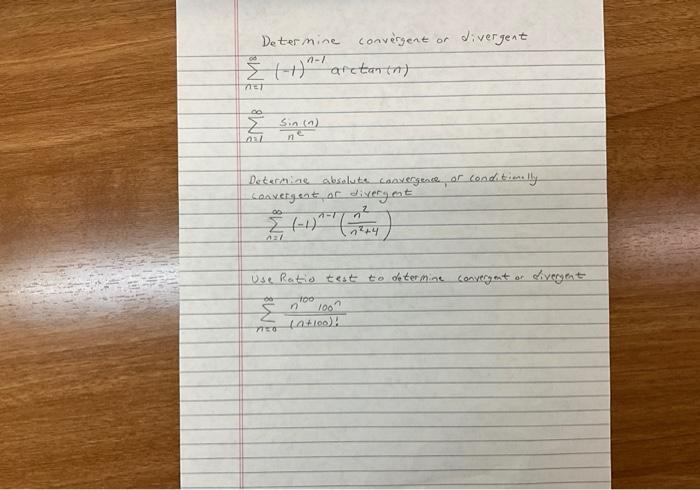 Determine convergent or divergent
∞
Σ (-1)^(n-1) arctan(n)
n=1
∞
Σ sin(n)/n^e
n=1
Determine absolute convergence, or conditionally
convergent, or divergent
∞
Σ (-1)^(n-1) (n²/(n²+4))
n=1
Use Ratio test to determine convergent or divergent
∞
Σ n^100 100^n/(n+100)!
n=0